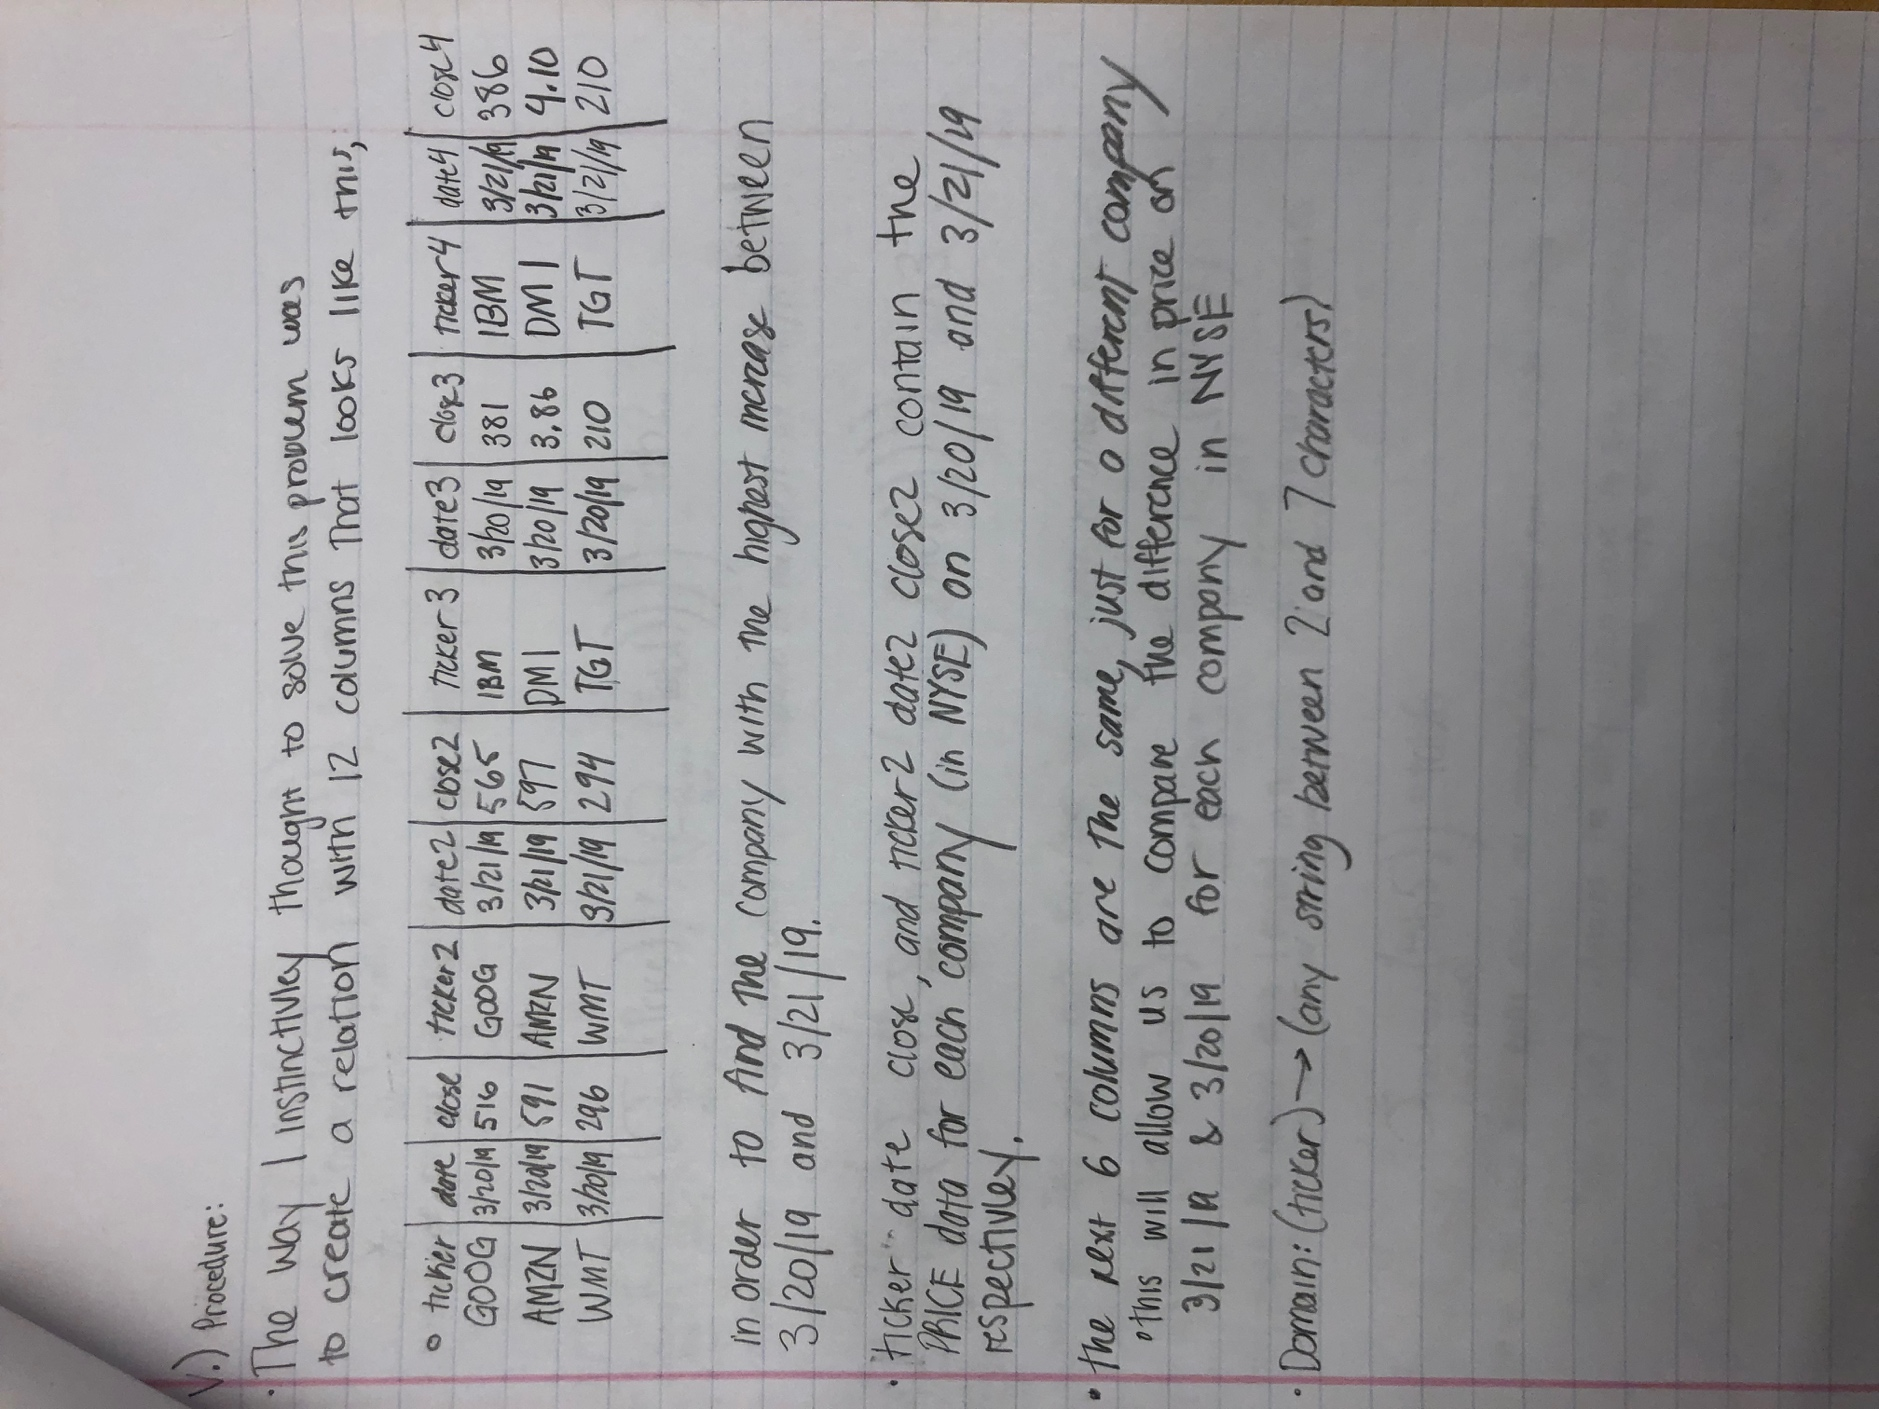 V.) Procedure:
· The way I instinctivley thought to solve this problem was
to create a relation with 12 columns that looks like this,
o ticker | date | close | ticker2 | date2 | close2 | ticker3 | date3 | close3 | ticker4 | date4 | close4
GOOG | 3/20/19 | 516 | GOOG | 3/21/19 | 565 | IBM | 3/20/19 | 381 | IBM | 3/21/19 | 386
AMZN | 3/20/19 | 591 | AMZN | 3/21/19 | 597 | DMI | 3/20/19 | 3.86 | DMI | 3/21/19 | 4.10
WMT | 3/20/19 | 296 | WMT | 3/21/19 | 294 | TGT | 3/20/19 | 210 | TGT | 3/21/19 | 210
in order to find the company with the highest increase between
3/20/19 and 3/21/19.
· ticker date close, and ticker2 date2 close2 contain the
PRICE data for each company (in NYSE) on 3/20/19 and 3/21/19
respectivley.
· the next 6 columns are the same, just for a different company
o this will allow us to compare the difference in price on
3/21/19 & 3/20/19 for each company in NYSE
· Domain: (ticker) → (any string between 2 and 7 characters)